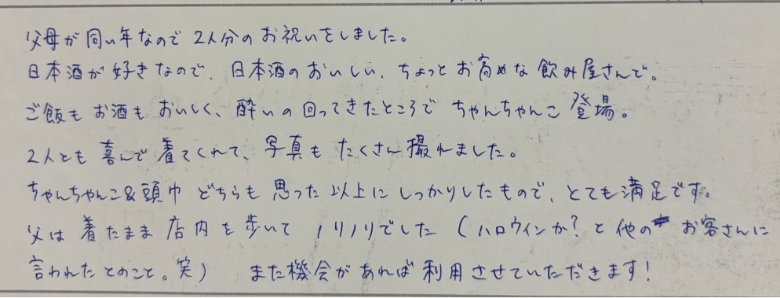 父母が同い年なので2人分のお祝いをしました。
日本酒が好きなので、日本酒のおいしい、ちょっとお高めな飲み屋さんで。
ご飯もお酒もおいしく、酔いの回ってきたところでちゃんちゃんこ登場。
2人とも喜んで着てくれて、写真もたくさん撮れました。
ちゃんちゃんこ&頭巾どちらも思った以上にしっかりしたもので、とても満足です。
父は着たまま店内を歩いてノリノリでした(ハロウィンか?と他のお客さんに
言われたとのこと。笑) また機会があれば利用させていただきます!